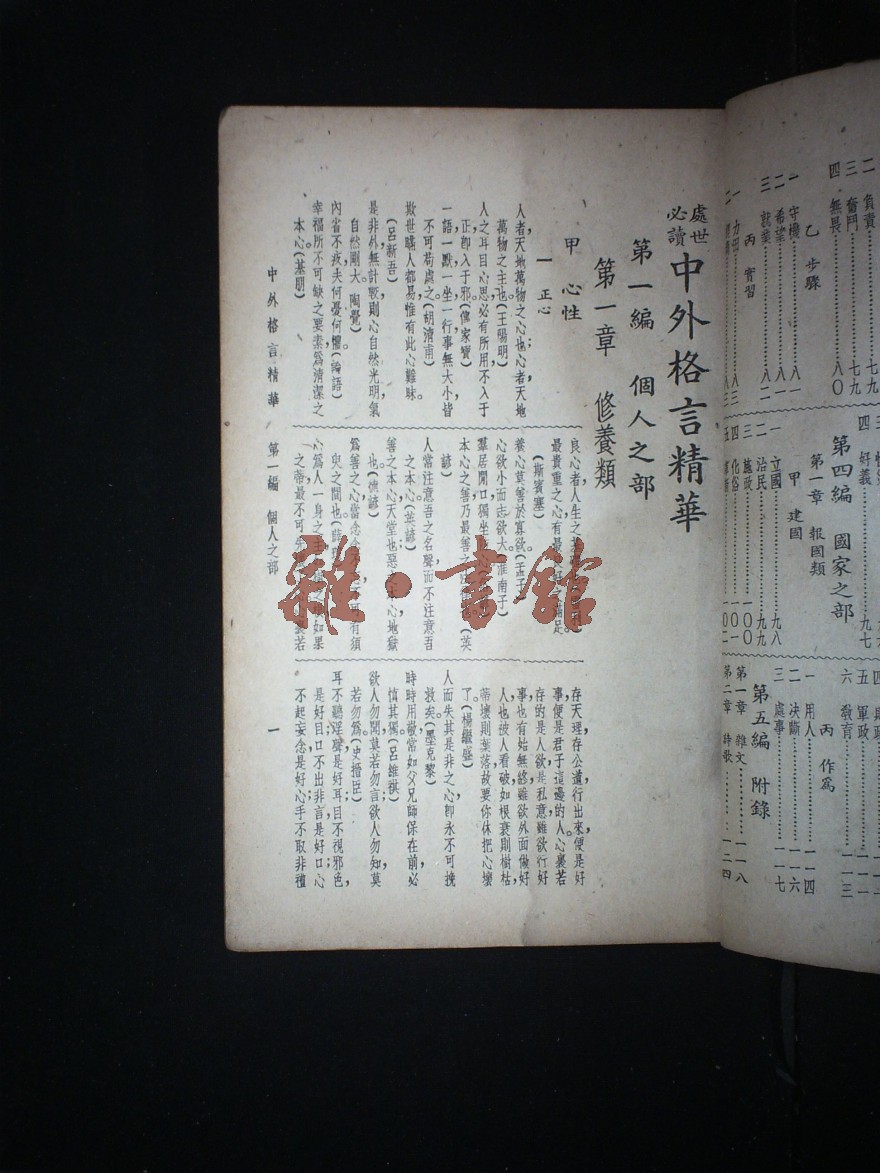 二　負責………七九
三　奮鬥………七九
四　無畏………八〇
乙　步驟
一　守機………八一
二　希望………八一
三　就業………八二
丙　實習
四　好義………九七
第四編　國家之部
第一章　報國類
甲　建國
一　立國………九八
二　治民………九九
三　施政………一〇〇
四　化俗………一〇一
五　軍政………一一一
六　教育………一一三
丙　作為
一　用人………一一四
二　決斷………一一六
三　處事………一一七
第五編　附錄
第一章　雜文………一一八
第二章　詩歌………一二四
處世必讀　中外格言精華
第一編　個人之部
第一章　修養類
甲　心性
一　正心
人者天地萬物之心也；心者天地
萬物之主也。（王陽明）
人之耳目心思必有所用，不入于
正，即入于邪。（傳家寶）
一語一默，一坐一行，事無大小，皆
不可苟處之。（胡濟甫）
欺世瞞人都易，惟有此心難昧。
（呂新吾）
是非外無計較，則心自然光明，氣
自然剛大。（陶覺）
內省不疚，夫何憂何懼？（論語）
幸福所不可缺之要素，為清潔之
本心。（基朋）
良心者，人生之
最貴重之心，有
滿足
（斯賓塞）
養心莫善於寡欲。（孟子）
心欲小而志欲大。（淮南子）
羣居閉口，獨坐
本心之善，乃最善之
（英
諺）
人常注意吾之名聲，而不注意吾
之本心。（英諺）
善之本心，天堂也；惡之本心，地獄
也。（德諺）
為善之心，當念念
有須
臾之間也。（薛
心為人一身之主，
如果
之蒂，最不可先
裏若
存天理，存公道，行出來，便是好
事，便是君子這邊的人。心裏若
存的是人欲，是私意，雖欲行好
事也，有始無終，雖欲外面做好
人也，被人看破。如根衰則樹枯，
蒂壞則葉落，故要你休把心壞
了。（楊繼盛）
人而失其是非之心，即永不可挽
救矣。（墨克黎）
時時用敬，常如父兄師保在前，必
慎其獨。（呂維祺）
欲人勿聞，莫若勿言；欲人勿知，莫
若勿為。（史搢臣）
耳不聽淫聲，是好耳；目不視邪色，
是好目；口不出非言，是好口；心
不起妄念，是好心；手不取非禮
中外格言精華　第一編　個人之部　一
雜·書館